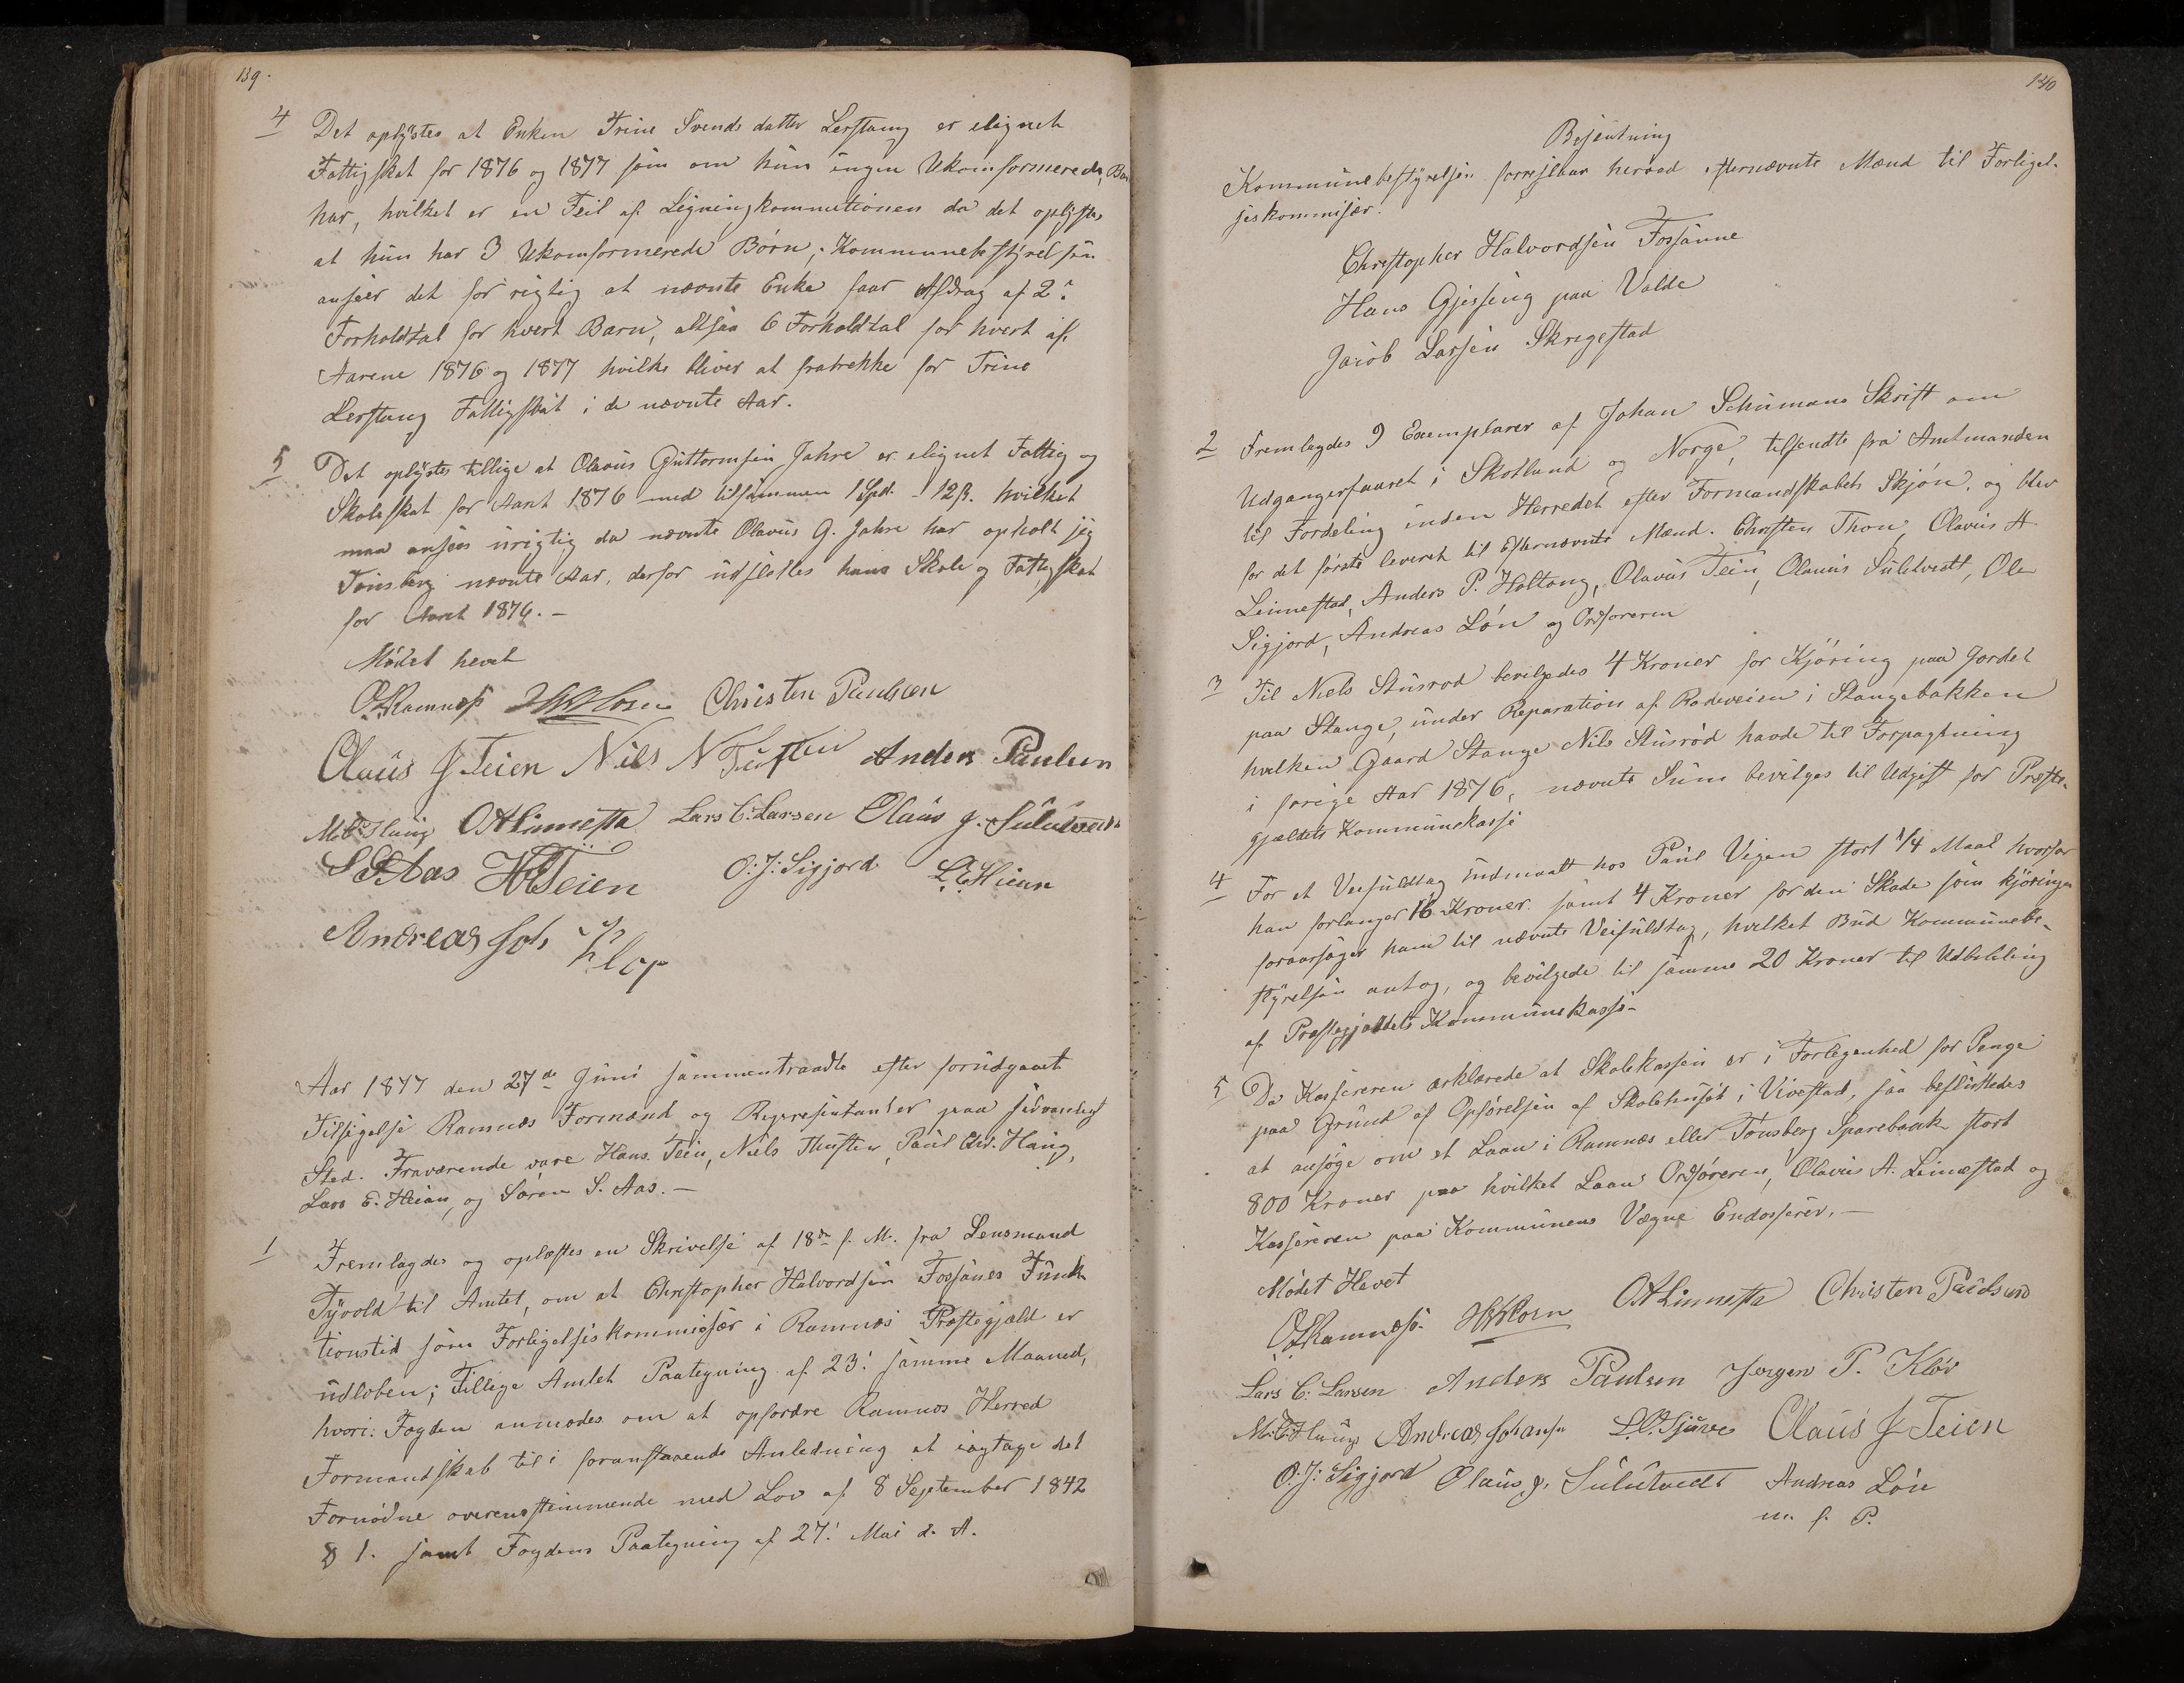 139.
4 Det oplystes at Enken Trine Svendsdatter Lerstang er elignet
Fattigskat for 1876 og 1877 som om hun ingen Ukomformerede Bør
har, hvilket er en Feil af Ligningkommitionen da det oplystes
at hun har 3 Ukomformerede Børn; Kommunebestyrelsen
anseer det for rigtig at nævnte Enke faar Afdrag af 2:
Forholdtal for hvert Barn, altsaa 6 Forholdtal for hvert af
Aarene 1876 og 1877 hvilke bliver at fratrekke for Trine
Lerstang Fattigskat i de nævnte Aar.
5 Det oplystes tillige at Olavus Guttormsen Jahre er elignet Fattig og
Skoleskat for Aaret 1876 med tilsammen 1 Spd. - 12 ß. hvilket
maa ansees urigtig da nævnte Olavus G. Jahre har opholt sig
Tønsberg nævnte Aar, derfor udslettes hans Skole og Fattigskat
for Aaret 1876. -
Mødet hevet
O. Ramnæs Christen Paulsen
Olaus J Teien Nils N Tufteu Anders Paulsen
M. C. Haug OALinnesta Lars C. Larsen Olaus J. Sulutvedt
S S Aas H Teien O. J. Sigjord L. E. Hiean
Andreas Joh
Aar 1877 den 27de Juni sammentraadte efter forudgaaet
Tilsigelse Ramnæs Formænd og Representanter paa sædvanligt
Sted. Fraværende vare Hans Teien, Niels Thuften, Paul Chr. Haug,
Lars E. Heian, og Søren S. Aas. -
1 Fremlagdes og oplæstes en Skrivelse af 18de f. M. fra Lensmand
Tyvold til Amtet, om at Christopher Halvordsen Fossanes Funk
tionstid som Forligelseskommissær i Ramnæs Præstegjæld er
udløben; Tillige Amtets Paategning af 23: samme Maaned,
hvori Fogden anmodes om at opfordre Ramnæs Herred
Formandskab til i foranstaaende Anledning at iagtage det
Fornødne overensstemmende med Lov af 8 September 1842
§ 1. samt Fogdens Paategning af 27: Mai d. A.
140
Besluttning
Kommunebestyrelsen foreslaar herved efternævnte Mænd til Forligel-
seskommisær.
Christopher Halvordsen Fossanne
Hans Gjessing paa Valde
Jacob Larsen Skregestad
2 Fremlagdes 9 Exemplarer af Johan Schumans Skrift om
Udgangerfaaret i Skotland og Norge, tilsendte fra Amtmanden
til Fordeling inden Herredet efter Formandskabets Skjøn, og blev
for det første leveret til Efternævnte Mænd. Christen Thon, Olavus A
Leinnestad, Anders P. Holtong, Olavus Tein, Olaus Sulutvedt, Ole
Sigjord, Andreas Løn og Ordføreren
3 Til Niels Stusrød bevilgedes 4 Kroner for Kjøring paa Jordet
paa Stange, under Reparation af Rodeveien i Stangebakken
hvilken Gaard Stange Nils Stusrød havde til Forpagtning
i forige Aar 1876, nævnte Sum bevilges til Udgift for Præste-
gjældets Kommunekasse
4 For et Veifuldtag indmaalt hos Paul Vegen stort 1/4 Maal hvorfor
han forlanger 16 Kroner samt 4 Kroner for den Skade som kjøringen
foraarsager ham til nævnte Veifuldtag, hvilket Bud Kommunebe-
styrelsen antog, og bevilgede til samme 20 Kroner til Udbetaling
af Præstegjældets Kommunekasse -
5 Da Kassereren erklærede at Skolekassen er i Forlegenhed for Penge
paa Grund af Opførelsen af Skolehuset i Vivestad, saa besluttedes
at ansøge om et Laan i Ramnæs eller Tønsberg Sparebank stort
800 Kroner paa hvilket Laan Ordføreren, Olavus A. Leinestad og
Kassereren paa Kommunens Vægne Endosserer. -
Mødet Hevet
O. Ramnæs. OALinnesta Christen Paulsen
Lars C. Larsen Anders Paulsen Jørgen P. Kløv
M. C. Haug Andreas Johansn Olaus J Teien
O. J. Sigjord Olaus J. Sulutvedt Andreas Løn
m. f. P.